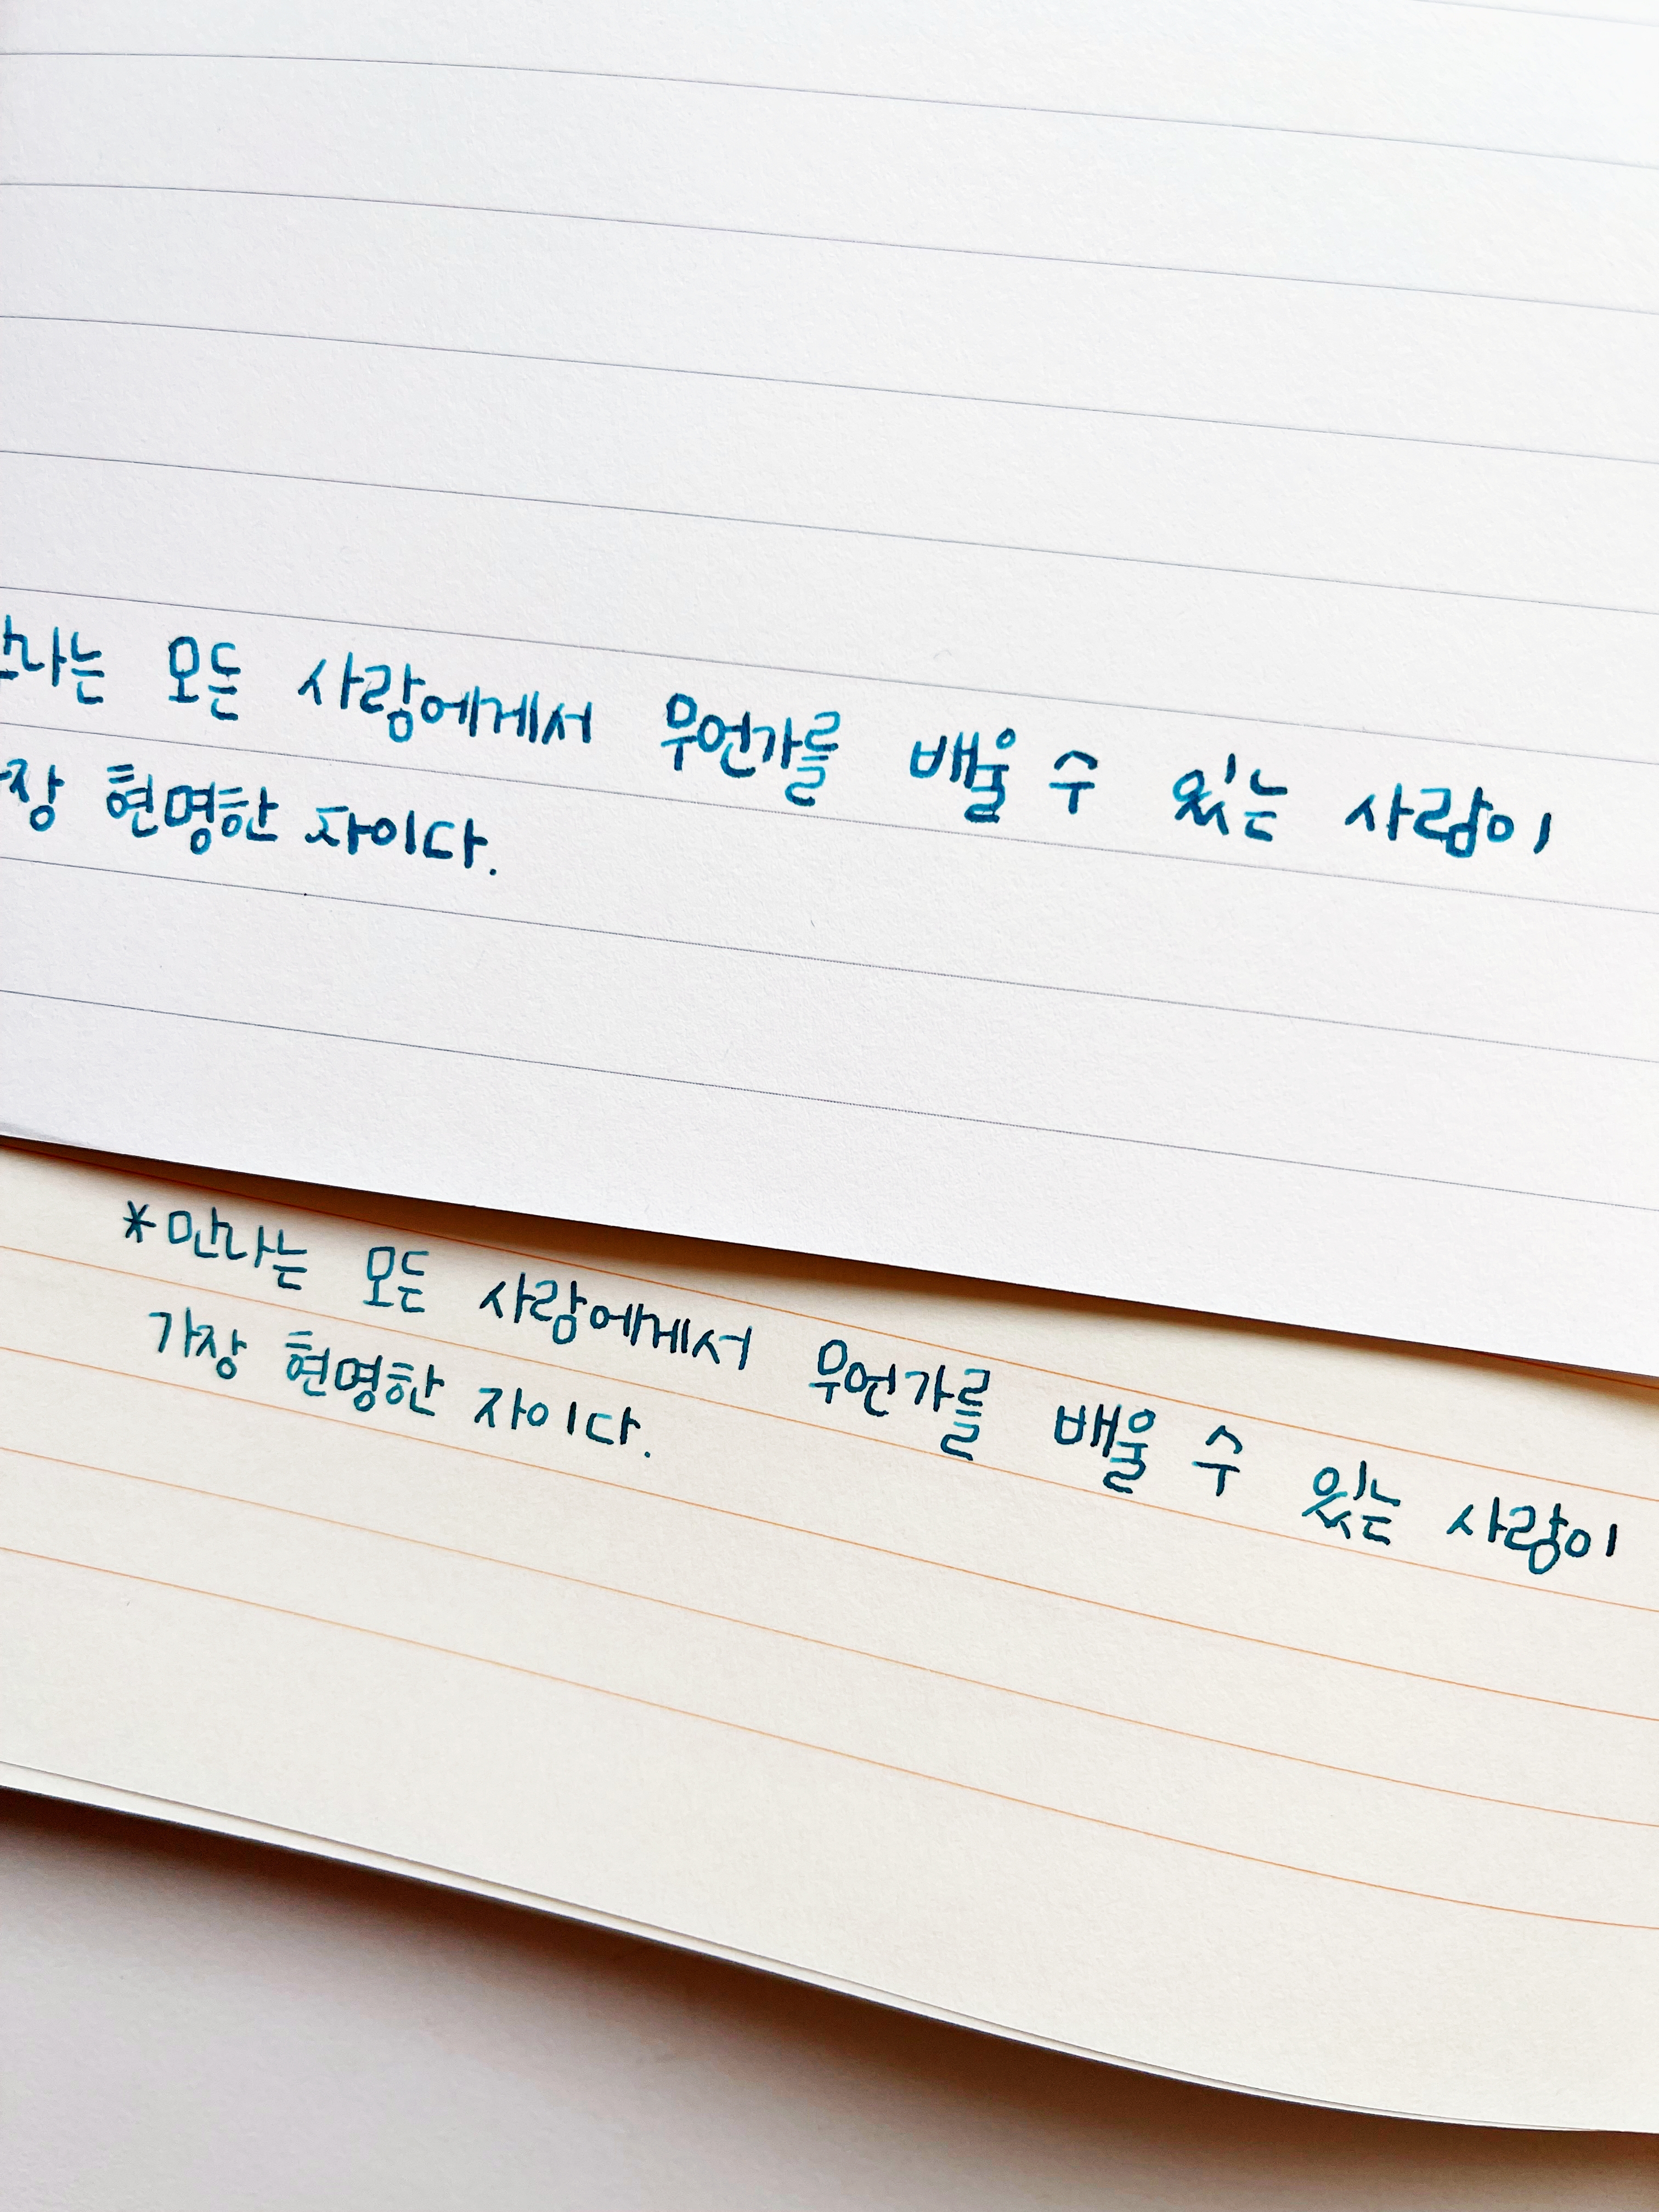 만나는 모든 사람에게서 무언가를 배울 수 있는 사람이
가장 현명한 자이다.
*만나는 모든 사람에게서 무언가를 배울 수 있는 사람이
가장 현명한 자이다.